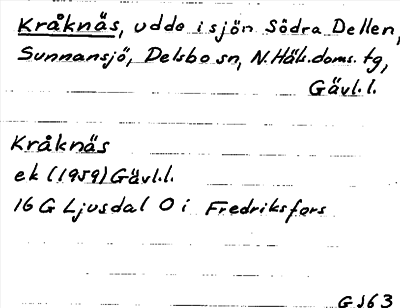 Kråknäs, udde i sjön Södra Dellen,
Sunnansjö, Delsbo sn, N. Häls. doms. tg,
Gävl. l.
Kråknäs
ek (1959) Gävl. l.
16 G Ljusdal O i Fredriksfors
G J63